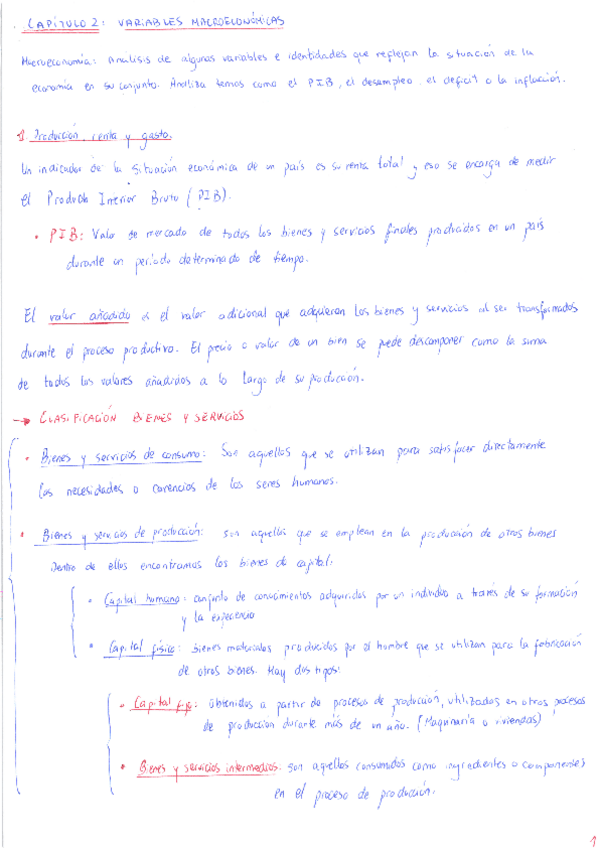 CAPÍTULO 2: VARIABLES MACROECONÓMICAS
Macroeconomía: análisis de algunas variables e identidades que reflejan la situación de la
economía en su conjunto. Analiza temas como el PIB, el desempleo, el déficit o la inflación.
1. Producción, renta y gasto.
Un indicador de la situación económica de un país es su renta total y eso se encarga de medir
el Producto Interior Bruto (PIB).
• PIB: Valor de mercado de todos los bienes y servicios finales producidos en un país
durante un período determinado de tiempo.
El valor añadido es el valor adicional que adquieren los bienes y servicios al ser transformados
durante el proceso productivo. El precio o valor de un bien se puede descomponer como la suma
de todos los valores añadidos a lo largo de su producción.
→ CLASIFICACIÓN BIENES Y SERVICIOS
• Bienes y servicios de consumo: Son aquellos que se utilizan para satisfacer directamente
las necesidades o carencias de los seres humanos.
• Bienes y servicios de producción: son aquellos que se emplean en la producción de otros bienes
Dentro de ellos encontramos los bienes de capital:
• Capital humano: conjunto de conocimientos adquiridos por un individuo a través de su formación
y la experiencia
• Capital físico: bienes materiales producidos por el hombre que se utilizan para la fabricación
de otros bienes. Hay dos tipos:
• Capital fijo: obtenidos a partir de procesos de producción, utilizados en otros procesos
de producción durante más de un año. (Maquinaria o viviendas)
• Bienes y servicios intermedios: son aquellos consumidos como ingredientes o componentes
en el proceso de producción.
1